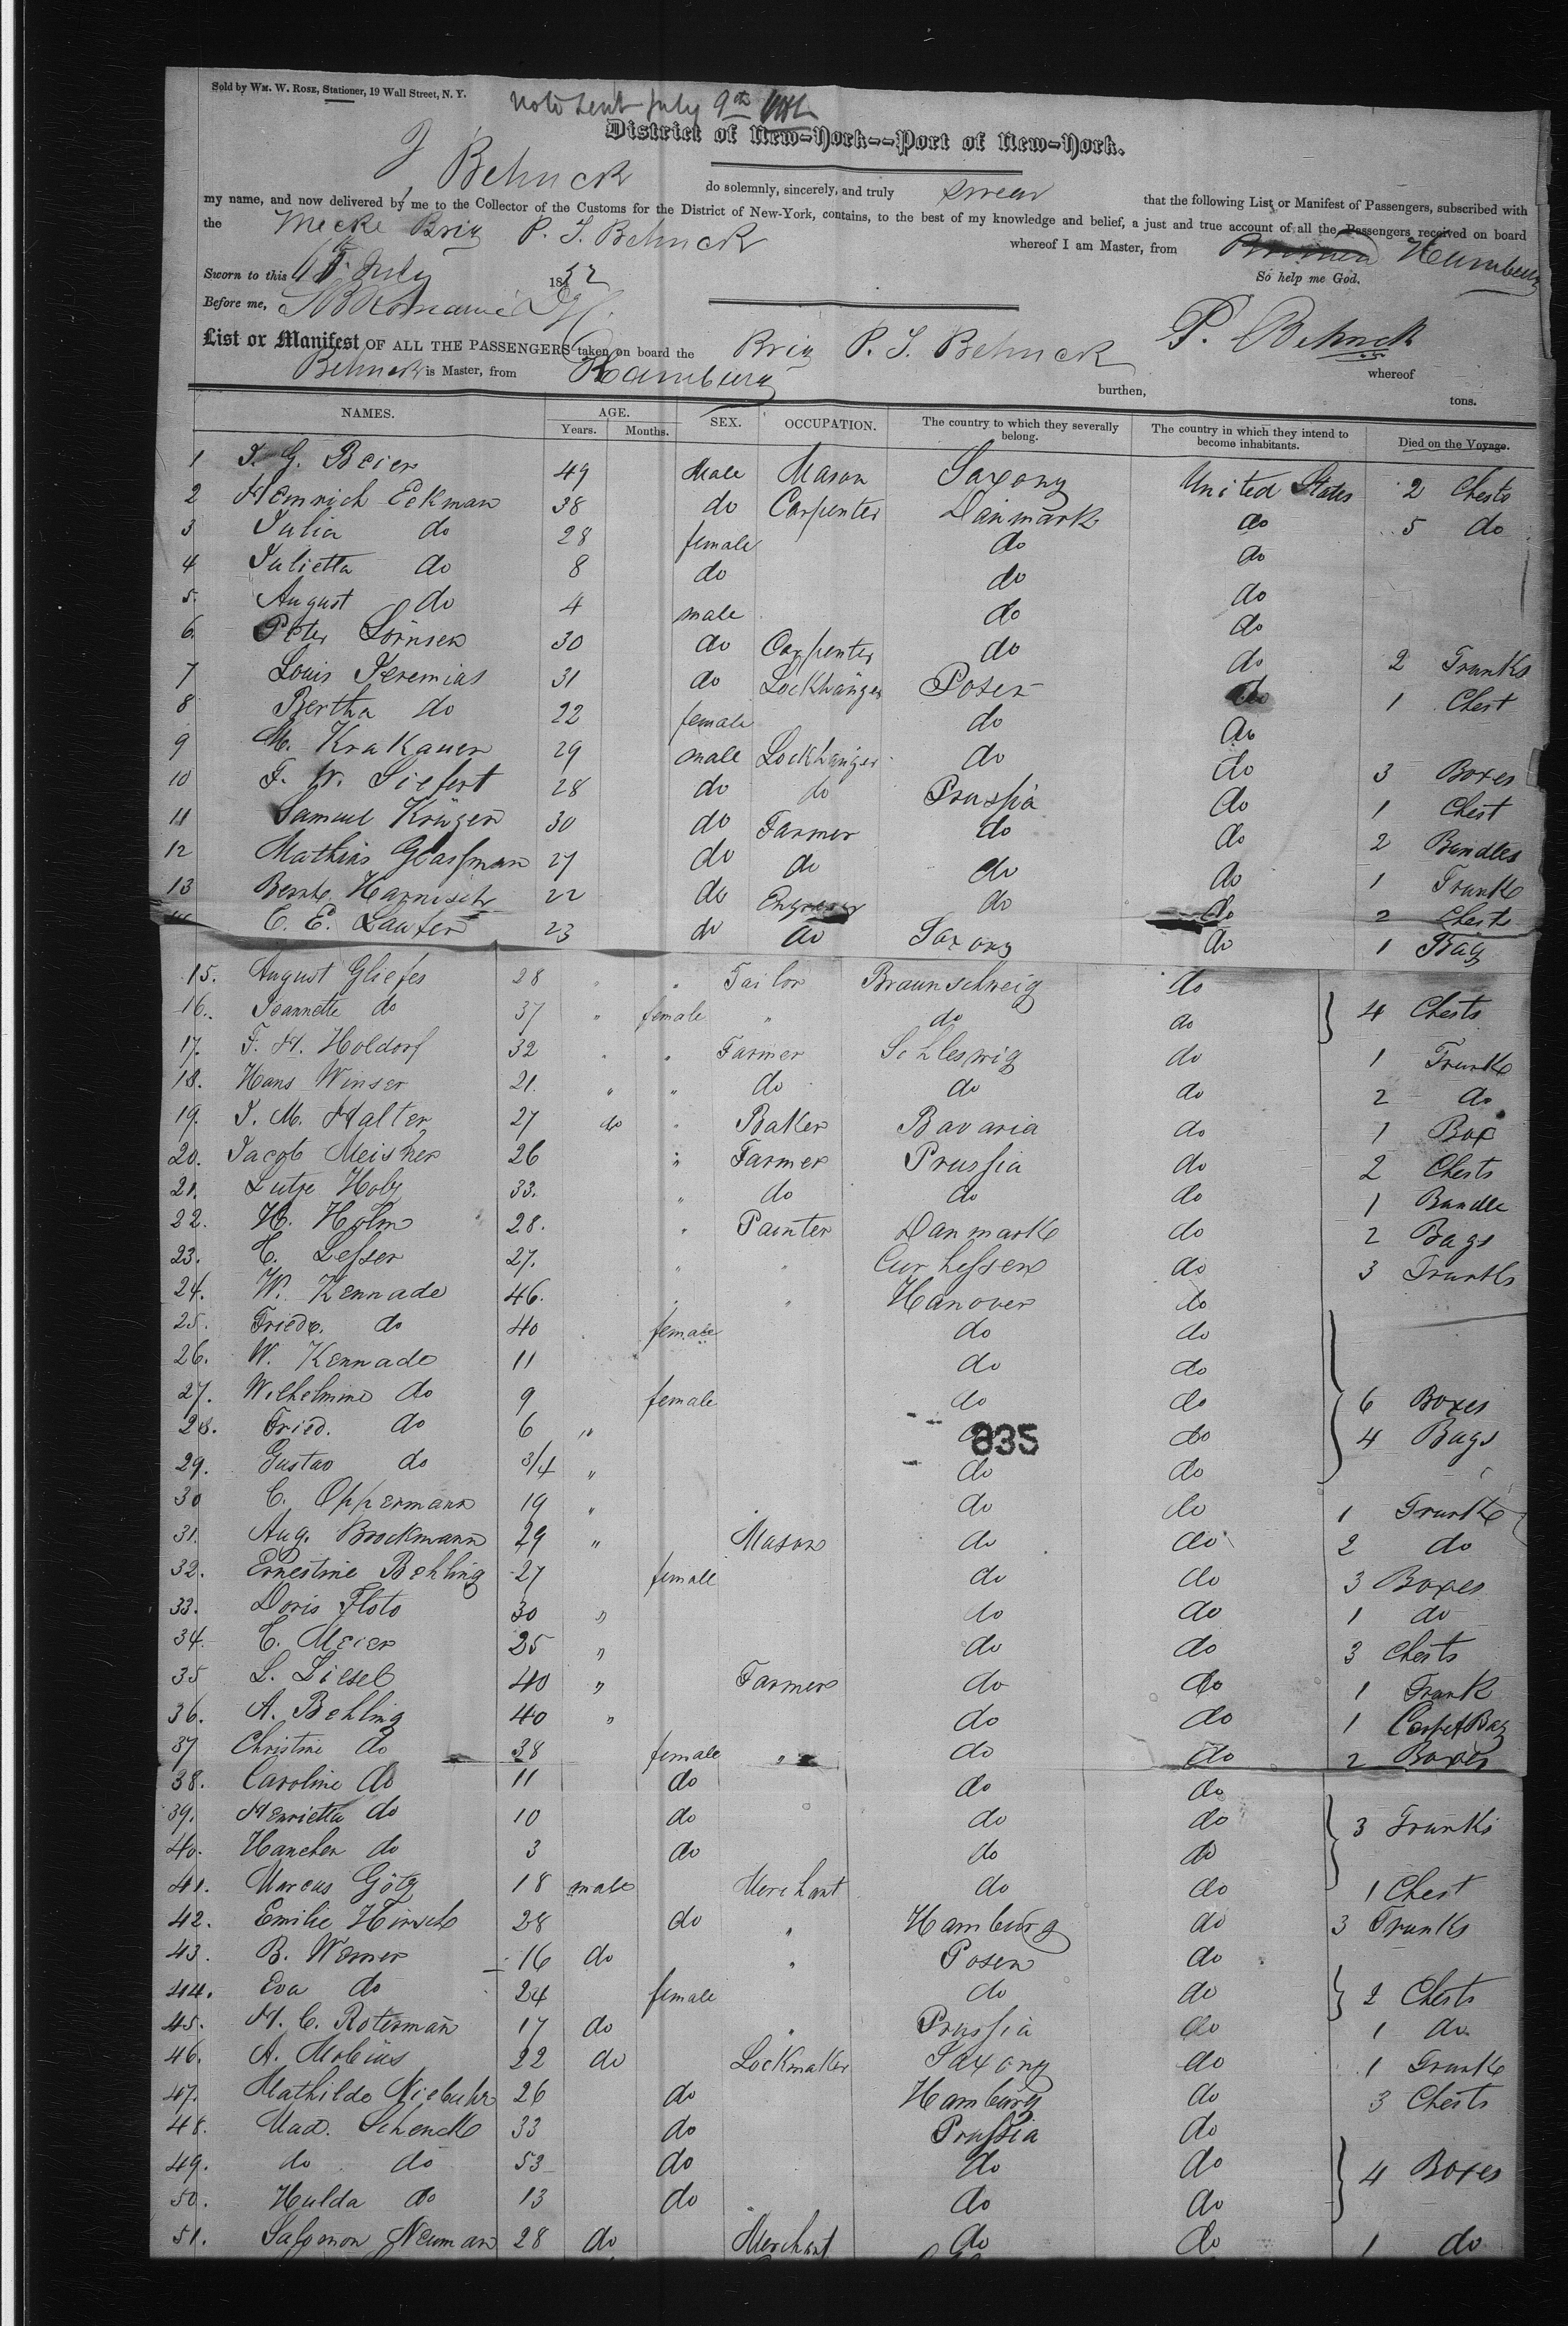 Sold by WM. W. ROSE, Stationer, 19 Wall Street, N. Y.
Note sent July 9th
District of New-York--Port of New-York.
I Behnck do solemnly, sincerely, and truly swear that the following List or Manifest of Passengers, subscribed with
my name, and now delivered by me to the Collector of the Customs for the District of New-York, contains, to the best of my knowledge and belief, a just and true account of all the Passengers received on board
the Meckl Brig P. S. Behnck whereof I am Master, from Bremen Hamburg
Sworn to this July 1852 So help me God.
Before me,
P. Behnck
List or Manifest OF ALL THE PASSENGERS taken on board the Brig P. S. Behnck whereof
Behnck is Master, from Hamburg burthen, tons.
NAMES. AGE. SEX. OCCUPATION. The country to which they severally belong. The country in which they intend to become inhabitants. Died on the Voyage.
Years. Months.
1 J. G. Beier 49 Male Mason Saxony United States 2 Chests
2 Heinrich Eekman 38 do Carpenter Danmark do 5 do
3 Julia do 28 female do do
4 Julietta do 8 do do do
5. August do 4 male do do
6. Peter Lörnsen 30 do Carpenter do do 2 Trunks
7 Louis Jeremias 31 do Lockhänger Posen do 1 Chest
8 Bertha do 22 female do do
9 M. Krakauer 29 male Lockhänger do do 3 Boxes
10 F. W. Siefert 28 do do Prussia do 1 Chest
11 Samuel Krüger 30 do Farmer do do 2 Bundles
12 Mathias Glassman 27 do do do do 1 Trunk
13 Harnisch 22 do do do 2 Chests
C. E. Laufer 23 do do Saxony do 1 Bag
15. August Gliefes 28 " " Tailor Braunschweig do
16. Jeannette do 37 " female " do do 4 Chests
17. F. H. Holdorf 32 " " Farmer Schleswig do 1 Trunk
18. Hans Winser 21. " " do do do 2 do
19. J. M. Halter 27 do " Baker Bavaria do 1 Box
20. Jacob Meisher 26 " Farmer Prussia do 2 Chests
21. Lutze Holz 33. " do do do 1 Bundle
22. H. Holm 28. " Painter Danmark do 2 Bags
23. C. Lesser 27. " " Curhessen do 3 Trunks
24. W. Kennade 46. " " Hanover do
25. Friedr. do 40 female do do
26. W. Kennade 11 do do
27. Wilhelmine do 9 female do do 6 Boxes
28. Fried. do 6 " do do 4 Bags
835
29. Gustav do 3/4 " do do
30 C. Oppermann 19 " do do 1 Trunk
31. Aug. Brockmann 29 " Mason do do 2 do
32. Ernestine Behling 27 female do do 3 Boxes
33. Doris Floto 30 " do do 1 do
34. C. Meier 25 " do do 3 Chests
35 L. Liesel 40 " Farmer do do 1 Trunk
36. A. Behling 40 " do do 1 Carpet Bag
37 Christine do 38 female " do do 2 Boxes
38. Caroline do 11 do do do
39. Henrietta do 10 do do do 3 Trunks
40. Hanchen do 3 do do do
41. Marcus Götz 18 male Merchant do do 1 Chest
42. Emilie Hirsch 28 do " Hamburg do 3 Trunks
43. B. Werner 16 do " Posen do
44. Eva do 24 female do do 2 Chests
45. H. C. Roterman 17 do " Prussia do 1 do.
46. A. Mobius 22 do Lockmaker Saxony do 1 Trunk
47. Mathilde Niebuhr 26 do Hamburg do 3 Chests
48. Mad. Schenck 33 do Prussia do
49. do do 53 do do do 4 Boxes
50. Hulda do 13 do do do
51. Salomon Neuman 28 do Merchant do do 1 do